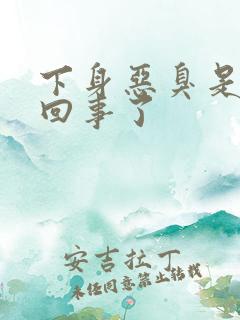 下身惡臭
回事了
安吉拉丁
未经同意禁止转载